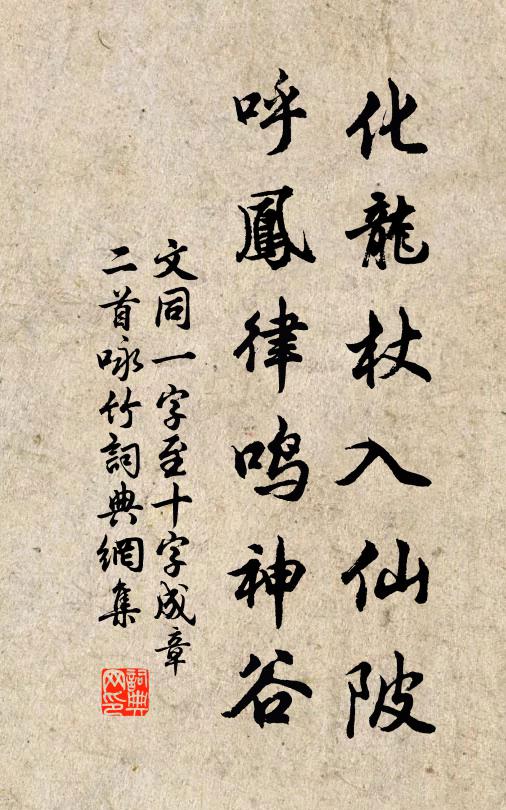 化龍杖入仙陂
呼鳳律鸣神谷
文同一字至十字成章
二首咏竹詞典網集
詞典
网印